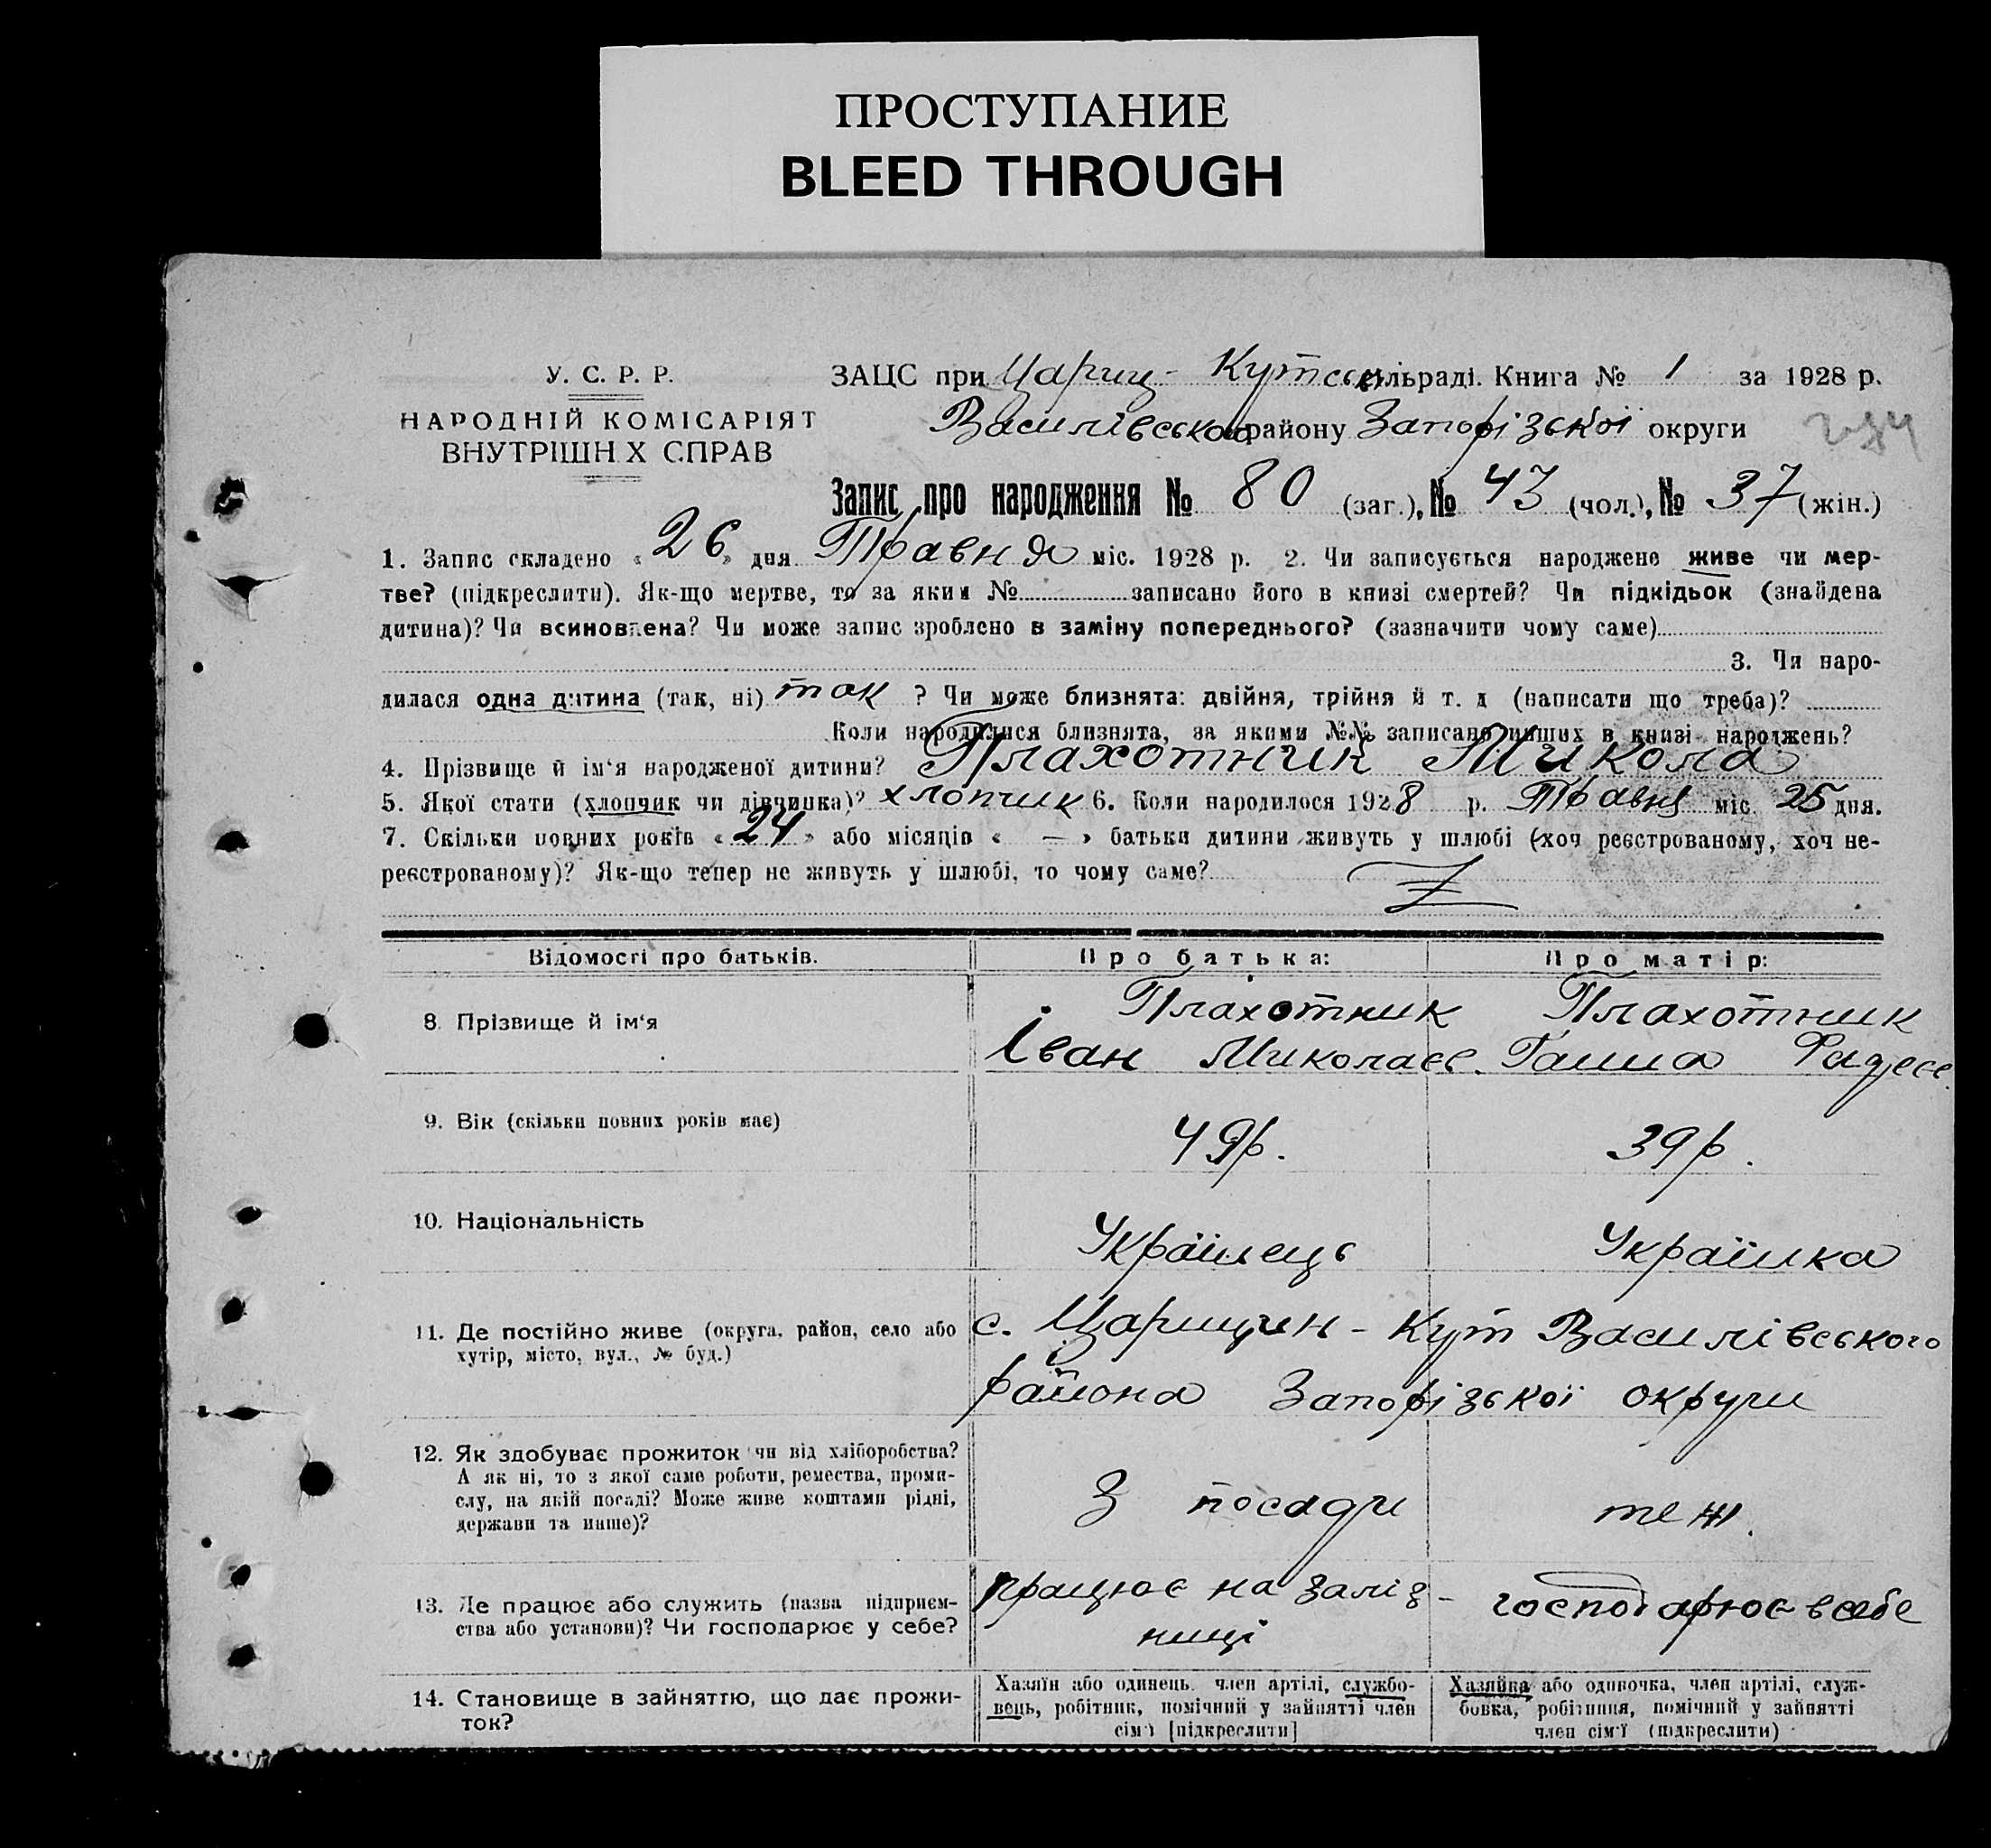 ПРОСТУПАНИЕ
BLEED THROUGH
У. С. Р. Р.
НАРОДНІЙ КОМІСАРІЯТ
ВНУТРІШН Х СПРАВ
ЗАЦС при Цариц-Кутськ сільраді. Книга № 1 за 1928 р.
Василівського району Запорізької округи
Запис про народження № 80 (заг.), № 43 (чол.), № 37 (жін.)
1. Запис складено «26» дня Травня міс. 1928 р. 2. Чи записується народжене живе чи мер-
тве? (підкреслити). Як-що мертве, то за яким № записано його в книзі смертей? Чи підкідьок (знайдена
дитина)? Чи всиновлена? Чи може запис зроблено в заміну попереднього? (зазначити чому саме)
3. Чи наро-
дилася одна дитина (так, ні) так ? Чи може близнята: двійня, трійня й т. д (написати що треба)?
Коли народилися близнята, за якими №№ записано инших в книзі народжень?
4. Прізвище й ім‘я народженої дитини? Плахотник Микола
5. Якої стати (хлопчик чи дівчинка)? хлопчик 6. Коли народилося 1928 р. Травня міс. 25 дня.
7. Скільки повних років «24» або місяців « — » батьки дитини живуть у шлюбі (хоч реєстрованому, хоч не-
реєстрованому)? Як-що тепер не живуть у шлюбі, то чому саме?
Відомості про батьків. Про батька: Про матір:
8. Прізвище й ім‘я
Плахотник Плахотник
Іван Миколаєв. Ганна Фадеєв.
9. Вік (скільки повних років має) 49р. 39р.
10. Національність Українець Українка
11. Де постійно живе (округа, район, село або
хутір, місто, вул., № буд.)
с. Царицин-Кут Василівського
района Запорізької округи
12. Як здобуває прожиток чи від хліборобства?
А як ні, то з якої саме роботи, ремества, проми-
слу, на якій посаді? Може живе коштами рідні,
держави та инше)?
З посади теж.
13. Де працює або служить (назва підприєм-
ства або установи)? Чи господарює у себе?
працює на заліз-
ниці
господарює в себе
14. Становище в зайняттю, що дає прожи-
ток?
Хазяїн або одинець, член артілі, службо-
вець, робітник, помічний у зайнятті член
сім‘ї [підкреслити]
Хазяйка або одиночка, член артілі, служ-
бовка, робітниця, помічний у зайнятті
член сім‘ї (підкреслити)